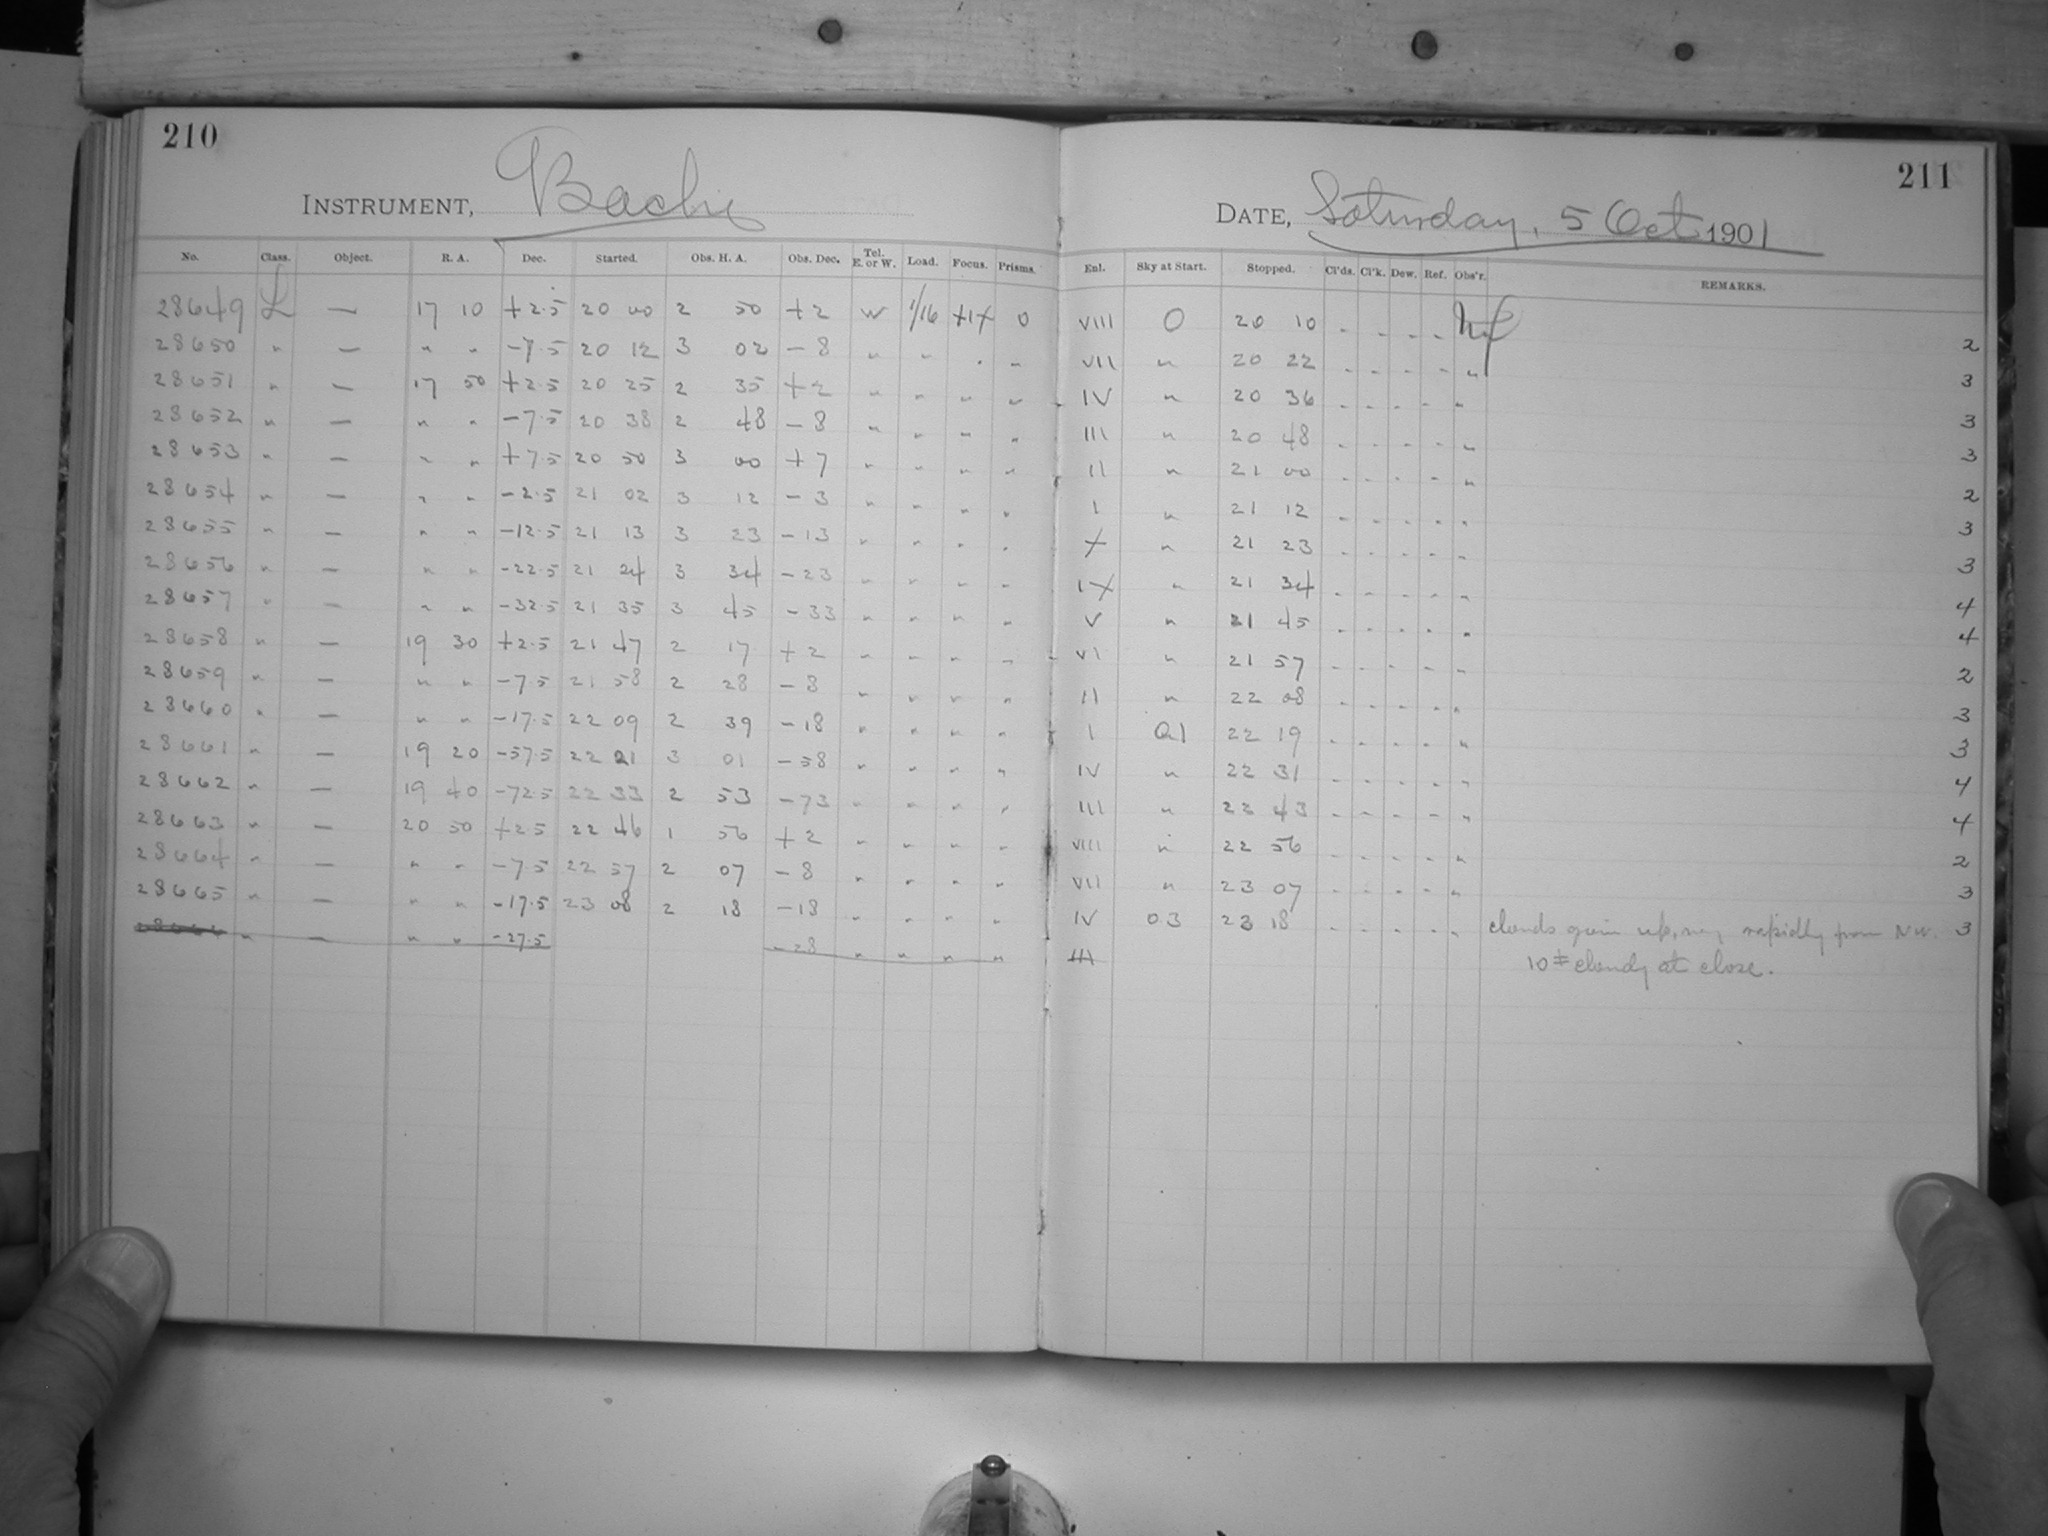 210
INSTRUMENT, Bache
No. Class. Object. R. A. Dec. Started. Obs. H. A. Obs. Dec. Tel. E. or W. Load. Focus. Prisms.
28649 L — 17 10 +2.5 20 00 2 50 +2 W 1/16 0
28650 " — " " -7.5 20 12 3 02 -8 " " " "
28651 " — 17 50 +2.5 20 25 2 35 +2 " " " "
28652 " — " " -7.5 20 38 2 48 -8 " " " "
28653 " — " " +7.5 20 50 3 00 +7 " " " "
28654 " — " " -2.5 21 02 3 12 -3 " " " "
28655 " — " " -12.5 21 13 3 23 -13 " " " "
28656 " — " " -22.5 21 24 3 34 -23 " " " "
28657 " — " " -32.5 21 35 3 45 -33 " " " "
28658 " — 19 30 +2.5 21 47 2 17 +2 " " " "
28659 " — " " -7.5 21 58 2 28 -8 " " " "
28660 " — " " -17.5 22 09 2 39 -18 " " " "
28661 " — 19 20 -57.5 22 21 3 01 -58 " " " "
28662 " — 19 40 -72.5 22 33 2 53 -73 " " " "
28663 " — 20 50 +2.5 22 46 1 56 +2 " " " "
28664 " — " " -7.5 22 57 2 07 -8 " " " "
28665 " — " " -17.5 23 08 2 18 -18 " " " "
28666 " — " " -27.5 -28 " " " "
211
DATE, Saturday, 5 Oct 1901
Enl. Sky at Start. Stopped. Cl'ds. Cl'k. Dew. Ref. Obs'r. REMARKS.
VIII 0 20 10 - - - - 2
VII " 20 22 - - - - " 3
IV " 20 36 - - - - " 3
III " 20 48 - - - - " 3
II " 21 00 - - - - " 2
I " 21 12 - - - - " 3
X " 21 23 - - - - " 3
IX " 21 34 - - - - " 4
V " 21 45 - - - - " 4
VI " 21 57 - - - - " 2
II " 22 08 - - - - " 3
I 0.1 22 19 - - - - " 3
IV " 22 31 - - - - " 4
III " 22 43 - - - - " 4
VIII " 22 56 - - - - " 2
VII " 23 07 - - - - " 3
IV 0.3 23 18 - - - - " clouds rapidly from NW. 3
III 10± cloudy at close.